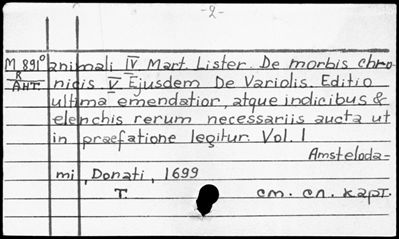 -2-
M 891° animali IV Mart. Lister. De morbis chro-
R nicis V Ejusdem De Variolis. Editio
Ант. ultima emendatior, atque indicibus &
elenchis rerum necessariis aucta ut
in praefatione legitur. Vol. I
Amsteloda=
mi, Donati, 1699
Т. см. сл. карт.